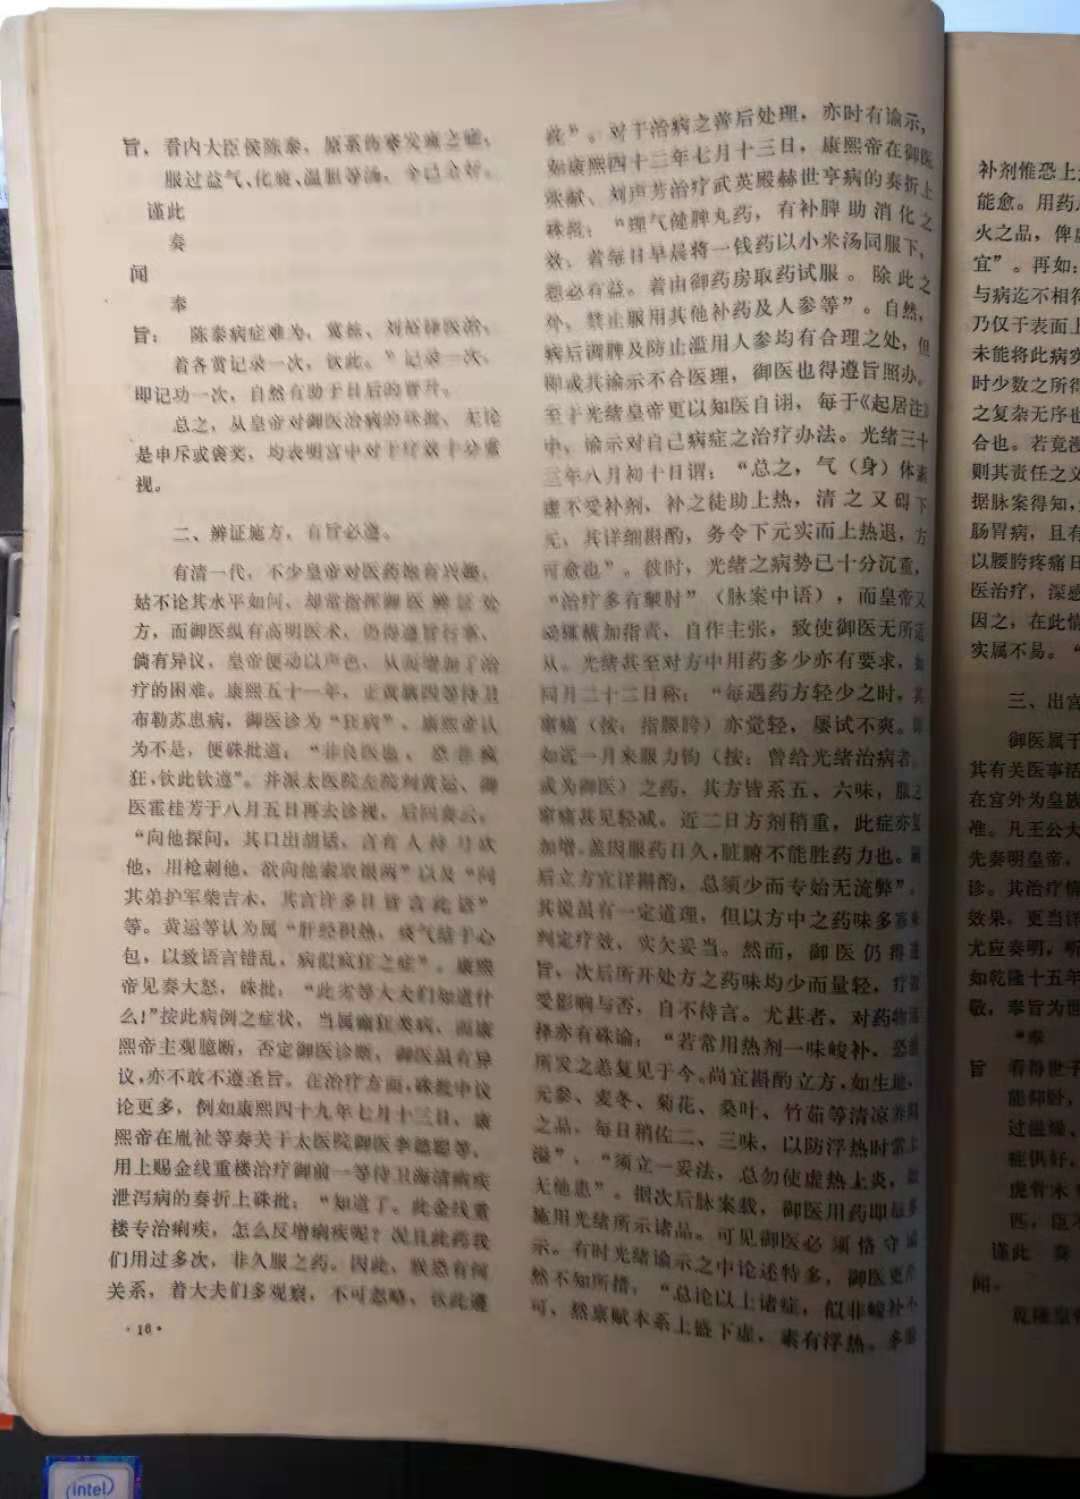 旨，看内大臣侯陈泰，原系伤寒发疹之症，
服过益气、化痰、温胆等汤，今已全好。
谨此
奏
闻
奉
旨： 陈泰病症难为，
着各赏记录一次，钦此。”记录一次，
即记功一次，自然有助于日后的晋升。
总之，从皇帝对御医治病的硃批，无论
是申斥或褒奖，均表明宫中对于疗效十分重
视。
二、辨证施方，有旨必遵。
有清一代，不少皇帝对医药颇有兴趣，
姑不论其水平如何，却常指挥御医辨证处
方，而御医纵有高明医术，仍得遵旨行事，
倘有异议，皇帝便动以声色，从而增加了治
疗的困难。康熙五十一年，正黄旗四等侍卫
布勒苏患病，御医诊为“狂病”，康熙帝认
为不是，便硃批道：“非良医也，
狂，钦此钦遵”。并派太医院左院判黄运、御
医霍桂芳于八月五日再去诊视，后回奏云：
“向他探问，其口出胡话，言有人持弓砍
他，用枪刺他，欲向他索取银两”以及“问
其弟护军柴吉木，其言许多日皆言此语”
等。黄运等认为属“肝经积热，痰气结于心
包，以致语言错乱，病似疯狂之症”。康熙
帝见奏大怒，硃批：“此劣等大夫们知道什
么！”按此病例之症状，当属癫狂类病，而康
熙帝主观臆断，否定御医诊断，御医虽有异
议，亦不敢不遵圣旨。在治疗方面，硃批中议
论更多，例如康熙四十九年七月十三日，康
熙帝在胤祉等奏关于太医院御医李德聪等，
用上赐金线重楼治疗御前一等侍卫海清痢疾
泄泻病的奏折上硃批：“知道了。此金线重
楼专治痢疾，怎么反增痢疾呢？况且此药我
们用过多次，非久服之药。因此，朕恐有何
关系，着大夫们多观察，不可忽略，钦此遵
·16·
此”。对于治病之善后处理，亦时有谕示，
如康熙四十二年七月十三日，康熙帝在御医
张献、刘声芳治疗武英殿赫世亨病的奏折上
硃批：“理气健脾丸药，有补脾助消化之
效，着每日早晨将一钱药以小米汤同服下，
想必有益。着由御药房取药试服。除此之
外，禁止服用其他补药及人参等”。自然，
病后调脾及防止滥用人参均有合理之处，但
抑或其谕示不合医理，御医也得遵旨照办。
至于光绪皇帝更以知医自诩，每于《起居注》
中，谕示对自己病症之治疗办法。光绪三十
三年八月初十日谓：“总之，气（身）体素
虚不受补剂，补之徒助上热，清之又碍下
元，其详细斟酌，务令下元实而上热退，方
可愈也”。彼时，光绪之病势已十分沉重，
“治疗多有掣肘”（脉案中语），而皇帝又
动辄横加指责，自作主张，致使御医无所适
从。光绪甚至对方中用药多少亦有要求，如
同月二十二日称：“每遇药方轻少之时，其
窜痛（按：指腰胯）亦觉轻，屡试不爽。即
如近一月来服力钧（按：曾给光绪治病者，
或为御医）之药，其方皆系五、六味，服之
窜痛甚见轻减。近二日方剂稍重，此症亦复
加增。盖因服药日久，脏腑不能胜药力也。嗣
后立方宜详斟酌，总须少而专始无流弊”。
其说虽有一定道理，但以方中之药味多寡来
判定疗效，实欠妥当。然而，御医仍得遵
旨，次后所开处方之药味均少而量轻，疗效
受影响与否，自不待言。尤甚者，对药物选
择亦有硃谕：“若常用热剂一味峻补，恐前
所发之恙复见于今。尚宜斟酌立方，如生地、
元参、麦冬、菊花、桑叶、竹茹等清凉养阴
之品，每日稍佐二、三味，以防浮热时常上
溢”，“须立一妥法，总勿使虚热上炎，
无他患”。据次后脉案载，御医用药即
施用光绪所示诸品。可见御医必须恪守谕
示。有时光绪谕示之中论述特多，御医更
然不知所措，“总论以上诸症，似非峻补不
可，然禀赋本系上盛下虚，素有浮热。多服
补剂惟恐上
能愈。用药
火之品，俾
宜”。再如：
与病迄不相符
乃仅于表面上
未能将此病实
时少数之所得
之复杂无序也
合也。若竟漫
则其责任之义
据脉案得知，
肠胃病，且有
以腰胯疼痛日
医治疗，深感
因之，在此情
实属不易。“
三、出宫
御医属于
其有关医事活
在宫外为皇族
准。凡王公大
先奏明皇帝，
诊。其治疗情
效果，更当详
尤应奏明，听
如乾隆十五年
敬，奉旨为世
“奉
旨 看得世子
能仰卧，
过滋燥、
症俱好，
虎骨木
匹，臣
谨此 奏
闻。
乾隆皇帝
intel